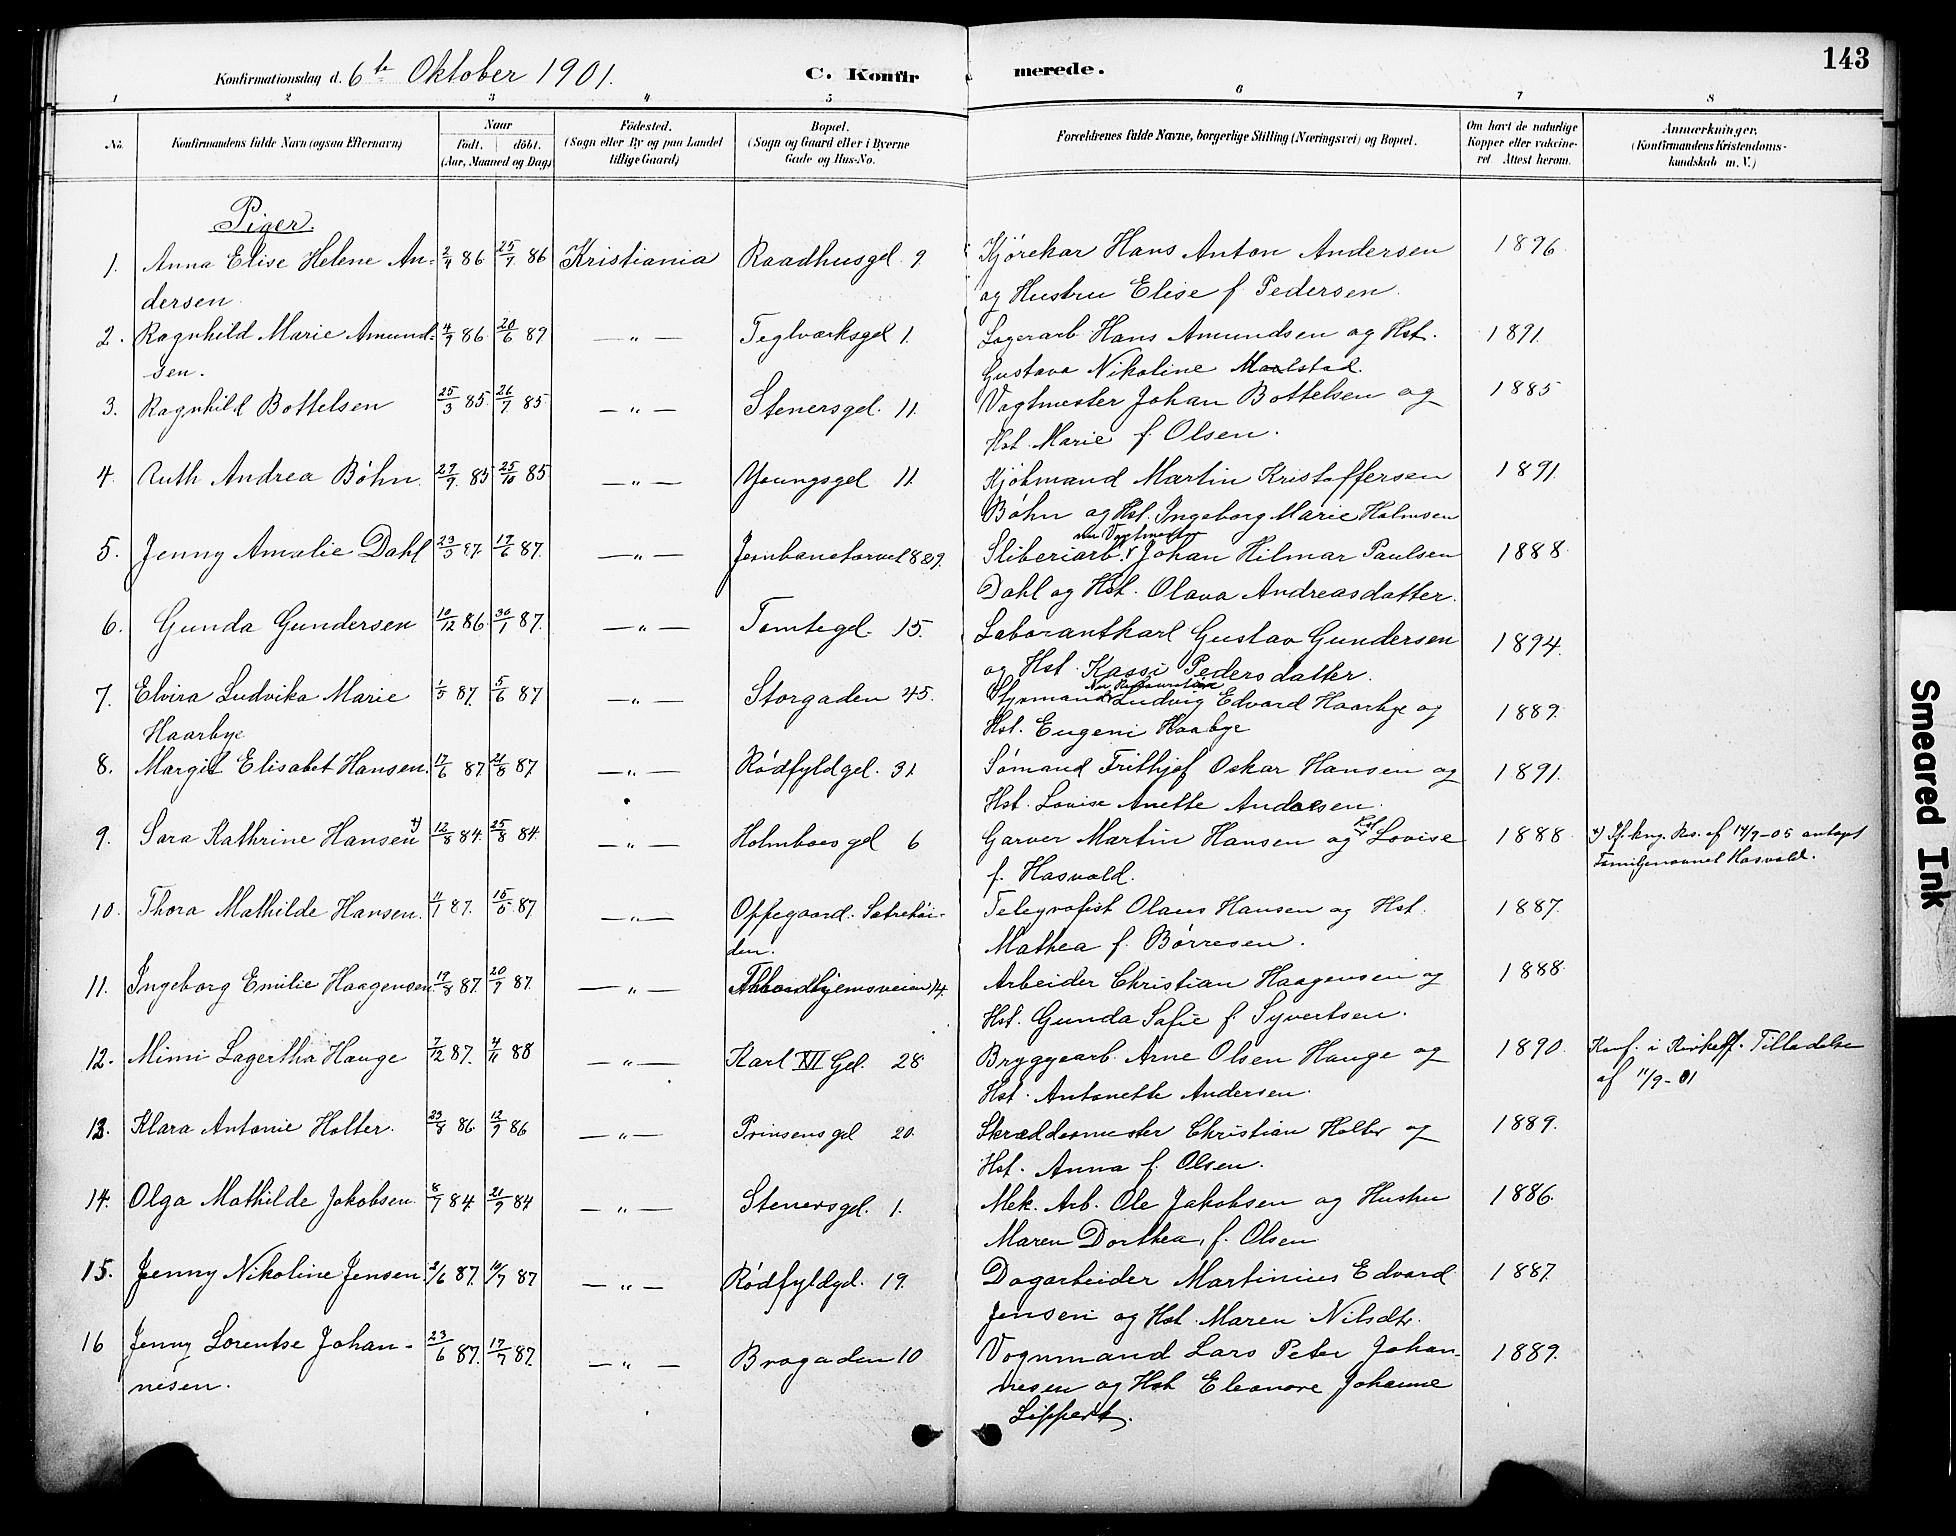 Konfirmationsdag d. 6te Oktober 1901. C. Konfir merede. 143
1 2 3 4 5 6 7 8
No. Konfirmandens fulde Navn (ogsaa Efternavn) Naar Födt. döbt. (Aar, Maaned og Dag) Födested. (Sogn eller By og paa Landet tillige Gaard) Bopæl. (Sogn og Gaard eller i Byerne Gade og Hus-No. Forældrenes fulde Navne, borgerlige Stilling (Næringsvei) og Bopæl. Om havt de naturlige Kopper eller vakcineret. Attest herom. Anmærkninger. (Konfirmandens Kristendomskundskab m. V.)
Piger.
1. Anna Elise Helene An- 2/4 86 25/7 86 Kristiania Raadhusgd. 9. Kjørekar Hans Anton Andersen 1896
dersen. og Hustru Elise f. Pedersen.
2. Ragnhild Marie Amund- 4/9 86 20/6 87 —"— Teglværksgd 1. Lagerarb. Hans Amundsen og Hst. 1891.
sen. Gustava Nikoline Maalstad.
3. Ragnhild Bottelsen 25/3 85 26/7 85 —"— Stenersgd. 11. Vagtmester Johan Bottelsen og 1885
Hst. Marie f. Olsen.
4. Ruth Andrea Bøhn. 27/9 85 25/10 85 —"— Youngsgd 11. Kjøbmand Martin Kristoffersen 1891.
Bøhn og Hst. Ingeborg Marie Holmsen
5. Jenny Amalie Dahl 23/3 87. 19/6 87. —"— Jernbanetorvet 8&9. Sliberiarb. nu Vagtmester Johan Hilmar Paulsen 1888.
Dahl og Hst. Olava Andreasdatter.
6. Gunda Gundersen 10/12 86. 30/1 87. —"— Tomtegd. 15. Laborantkarl Gustav Gundersen 1894.
og Hst. Kassi Pedersdatter.
7. Elvira Ludvika Marie 1/5 87. 5/6 87 —"— Storgaden 45. Styrmand Nu Restauratør Ludvig Edvard Haarbye og 1889.
Haarbye Hst. Eugeni Haabye
8. Margit Elisabet Hansen. 17/6 87 21/8 87 —"— Rødfyldgd. 31. Sømand Frithjof Oskar Hansen og 1891.
Hst. Lovise Anette Andersen.
9. Sara Kathrine Hansen +) 12/8 84. 25/8 84. —"— Holmboesgd 6 Garver Martin Hansen og Hst. Lovise 1888 +) If. kng. Res. af 14/9-05 antaget
f. Hasvold. Familjenavnet Hasvold.
10. Thora Mathilde Hansen. 11/1 87. 15/5 87 —"— Oppegaard. Sætrehøi- Telegrafist Olaus Hansen og Hst. 1887.
den. Mathea f. Børresen.
11. Ingeborg Emilie Haagensen. 19/8 87. 20/9 87. —"— 14. Arbeider Christian Haagensen og 1888.
Hst. Gunda Sofie f. Syvertsen.
12. Mimi Lagertha Hauge 7/12 87. 4/11 88 —"— Karl XII Gd. 28 Bryggearb. Arne Olsen Hauge og 1890. Konf. i Tilladelse
Hst. Antonette Andersen. af 11/9-01
13. Klara Antonie Holter. 23/8 86. 12/9 86 —"— Prinsensgd 20. Skræddermester Christian Holter og 1889.
Hst. Anna f. Olsen.
14. Olga Mathilde Jakobsen. 8/7 84 21/9 84 —"— Stenersgd. 1. Mek. Arb. Ole Jakobsen og Hustru 1886.
Maren Dorthea, f. Olsen
15. Jenny Nikoline Jensen. 2/6 87. 10/7 87 —"— Rødfyldgd. 19. Dagarbeider Martinius Edvard 1887.
Jensen og Hst. Maren Nilsdtr.
16 Jenny Lorentse Johan- 23/6 87. 17/7 87. —"— Brogaden 10. Vognmand Lars Peter Johan- 1889.
nesen. nesen og Hst Eleonore Johanne
Lippert.
Smeared Ink